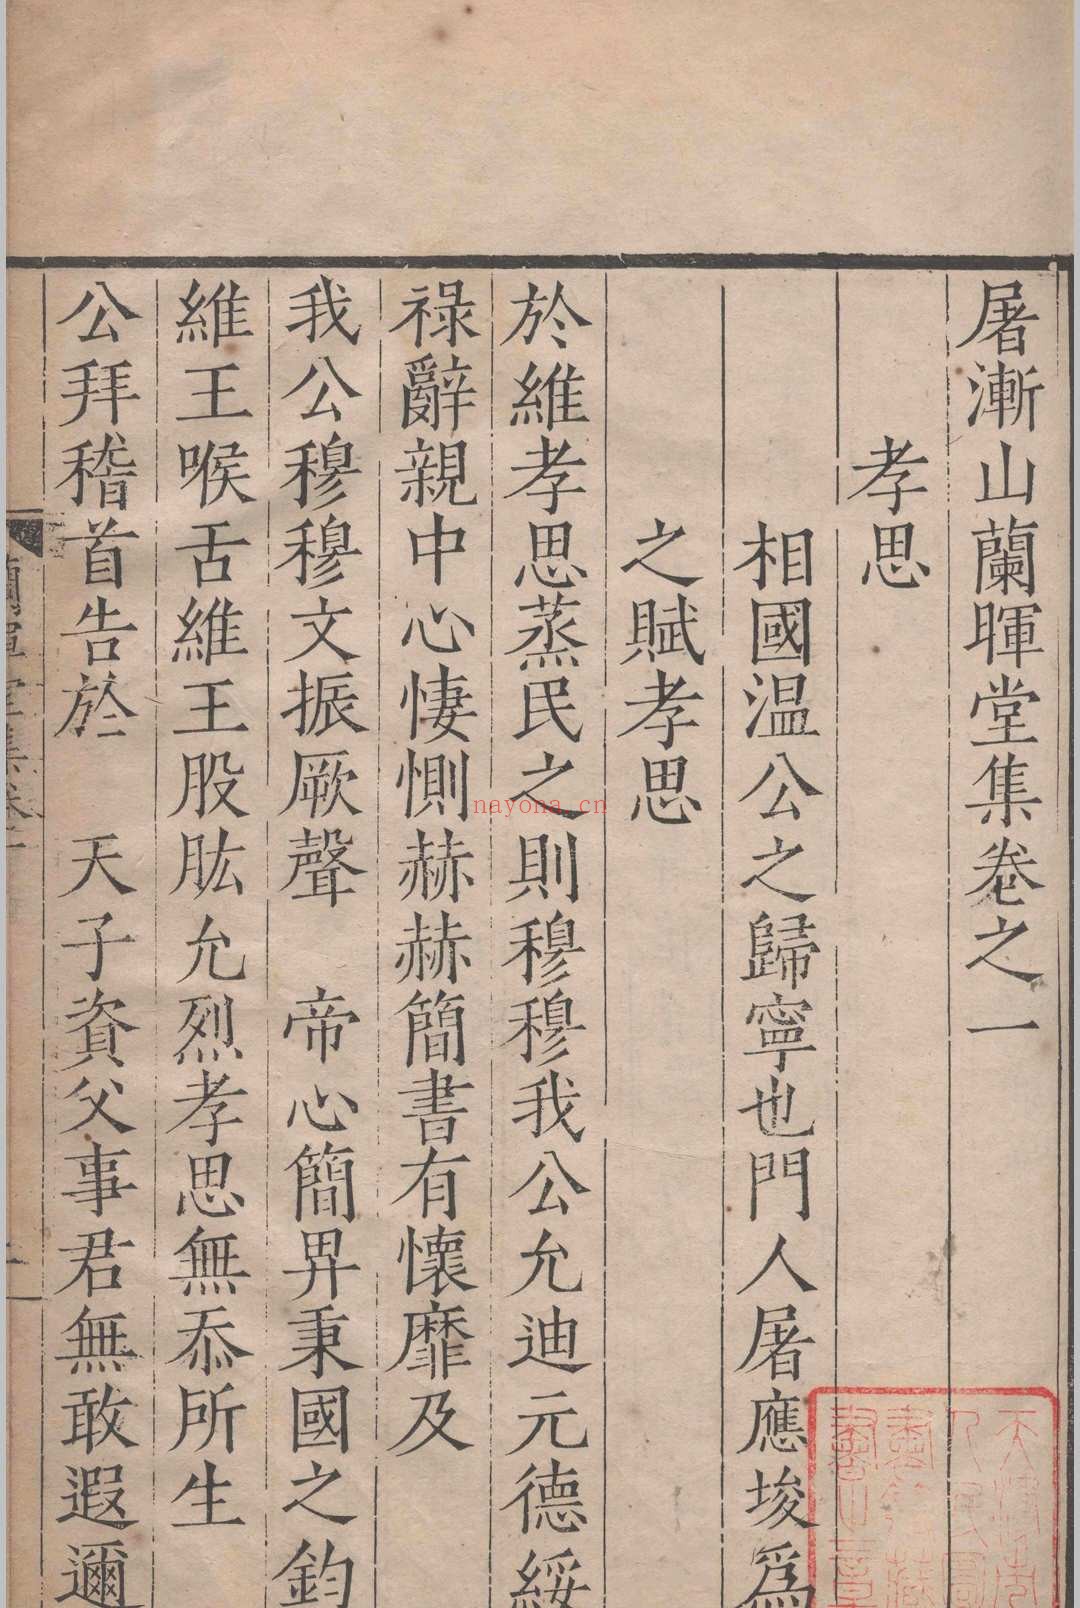 屠漸山蘭暉堂集卷之一
孝思
相國温公之歸寧也門人屠應埈爲
之賦孝思
於維孝思蒸民之則穆穆我公允迪元德綏
祿辭親中心悽惻赫赫簡書有懷靡及
我公穆穆文振厥聲　帝心簡畀秉國之鈞
維王喉舌維王股肱允烈孝思無忝所生
公拜稽首告於　天子資父事君無敢遐邇
nayona.cn